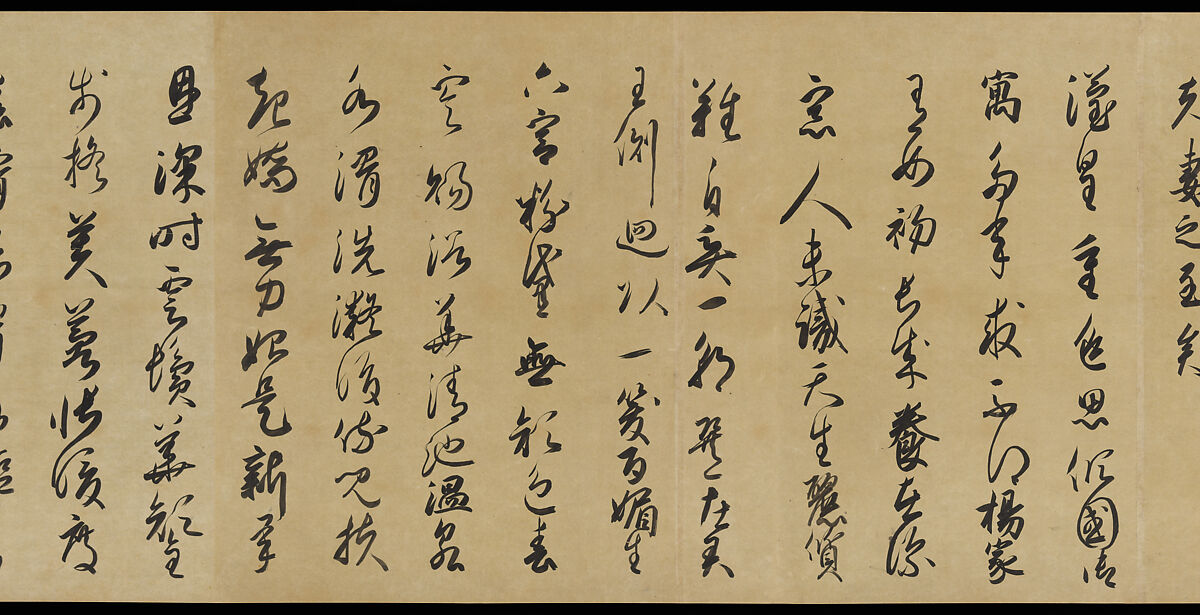 夫妻之至矣
漢皇重色思傾國御
寓多年求不得楊家
有女初長成養在深
窓人未識天生麗質
難自棄一朝選在君
王側迴以一笑百媚生
六宮粉黛無顏色春
寒賜浴華清池溫泉
水滑洗凝脂侍兒扶
起嬌無力始是新承
恩深時雲鬢華顏金
步搖芙蓉帳暖度